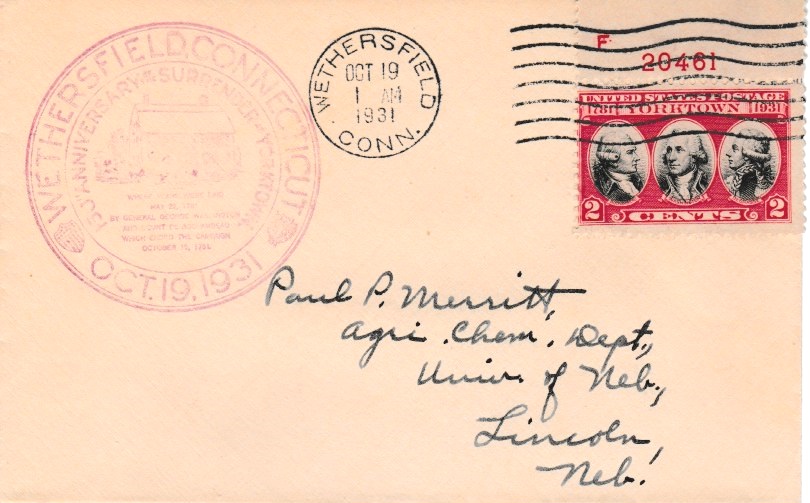 WETHERSFIELD, CONNECTICUT
150TH ANNIVERSARY OF THE SURRENDER AT YORKTOWN.
MAY 22, 1781
BY GENERAL GEORGE WASHINGTON
AND COUNT DE ROCHAMBEAU
WHICH ENDED THE CAMPAIGN
OCTOBER 19, 1781.
OCT. 19, 1931
WETHERSFIELD
OCT 19
1 AM
1931
CONN.
F
20461
UNITED STATES POSTAGE
1781 YORKTOWN 1931
2 CENTS 2
Paul P. Merritt,
Agri. Chem. Dept.,
Univ. of Neb.,
Lincoln,
Neb.